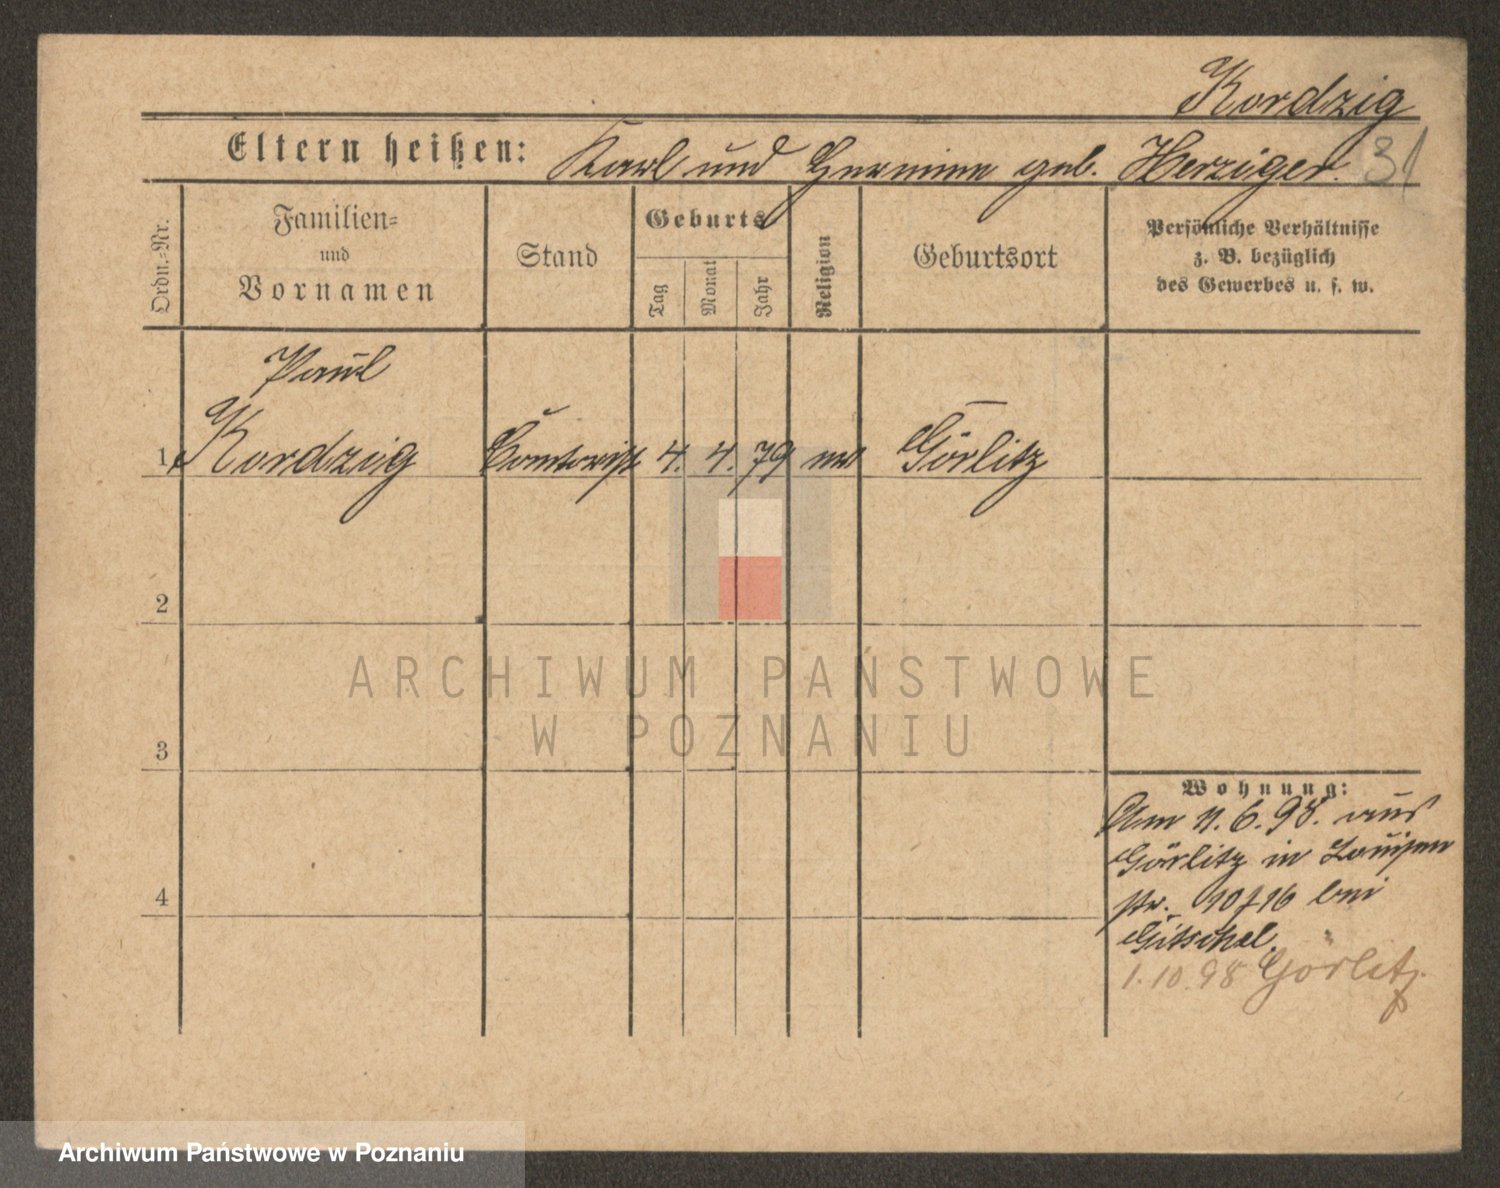 Kordzig
Eltern heißen: Karl und Hermine geb. Herziger. 31
Ordn.=Nr.
Familien=
und
Vornamen
Stand
Geburts
Tag
Monat
Jahr
Religion
Geburtsort
Persönliche Verhältnisse
z. B. bezüglich
des Gewerbes u. s. w.
Paul
1 Kordzig Comtorist 4. 4. 79 Görlitz
2
3
4
Wohnung:
Am 11. 6. 98. aus
Görlitz in Louisen
str. bei
Gitschel.
1.10.98 Görlitz.
ARCHIWUM PAŃSTWOWE
W POZNANIU
Archiwum Państwowe w Poznaniu